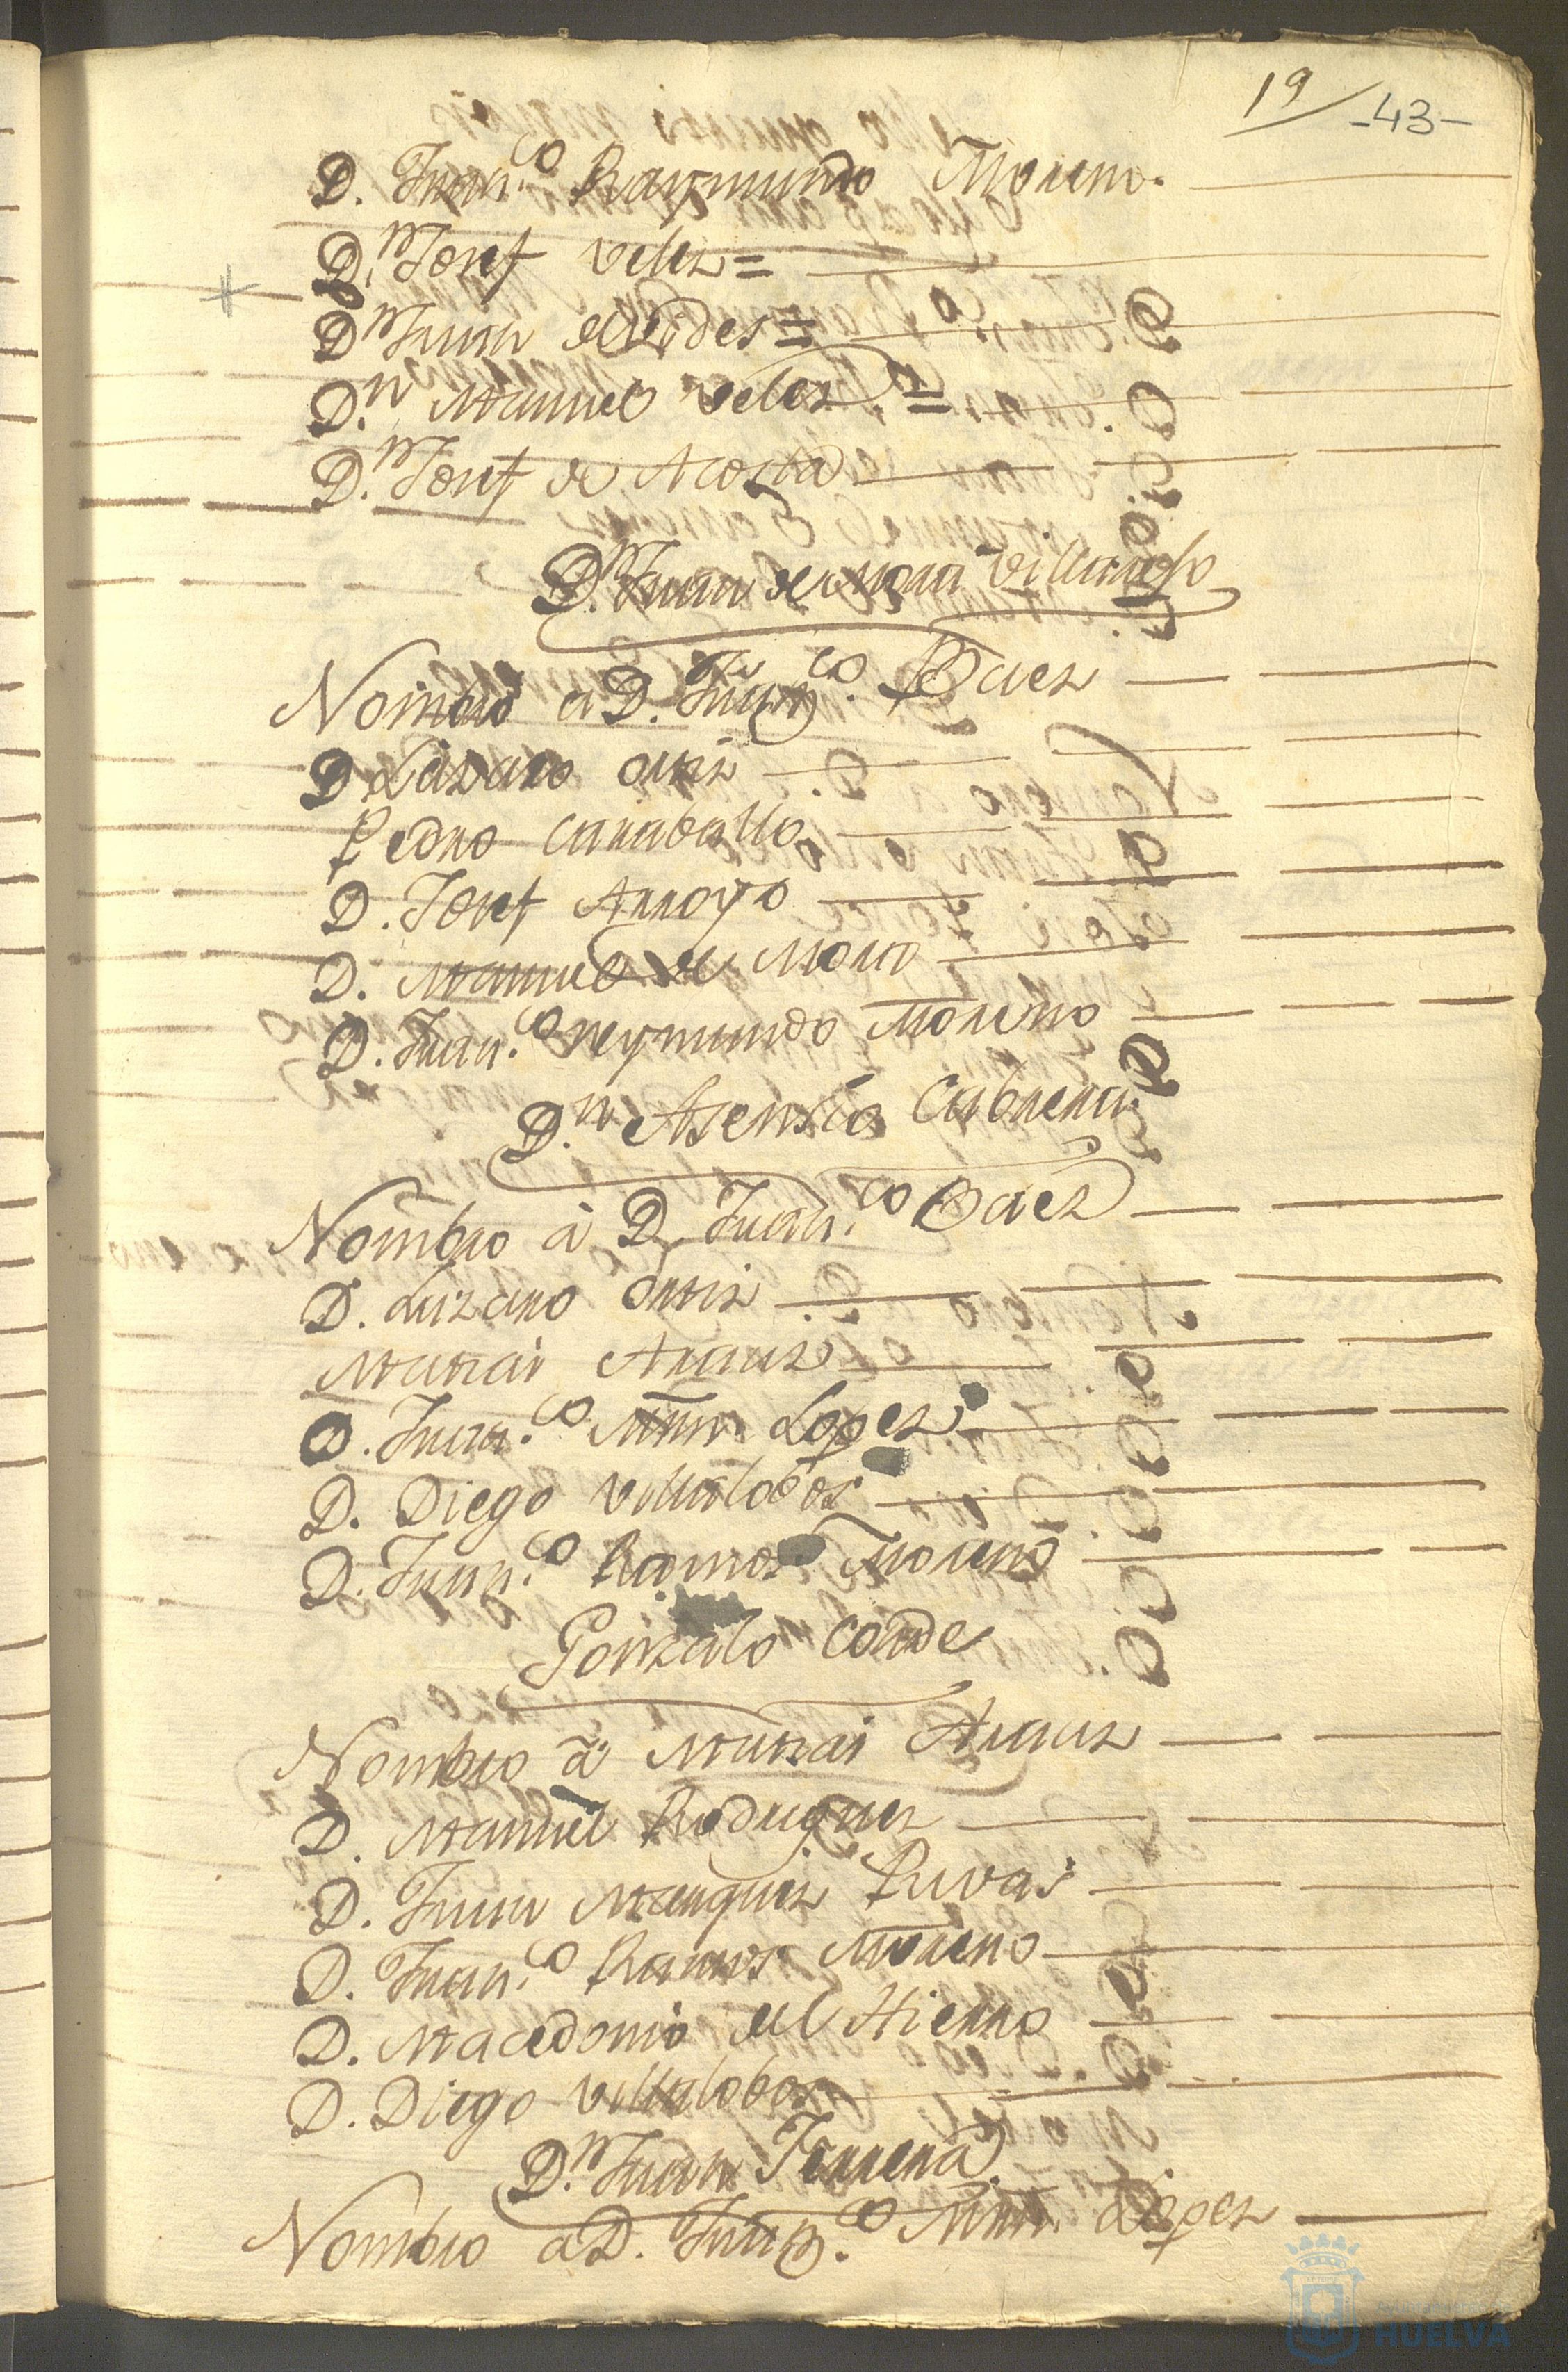 19/ -43-
D. Fran.co Raymundo Moreno.
D.n Josef Velez =
D.n Juan de Vides =
D.n Manuel Velez =
D.n Josef de Acosta
D.n Juan de Mora Villarejo
Nombró a D. Fran.co Baez
D. Lazaro Ortiz
Pedro Caraballo
D. Josef Arroyo
D. Manuel de Mora
D. Fran.co Reymundo Moreno
D.n Asensio Cabrera
Nombro à D. Fran.co Baez
D. Lazaro Ortiz
Matias Arauz
D. Fran.co Mrn. Lopez
D. Diego Villalobos
D. Fran.co Ramos Moreno
Gonzalo Conde
Nombro à Matias Arauz
D. Manuel Rodriguez
D. Juan Marquez Rivas
D. Fran.co Ramos Moreno
D. Macedonio del Hierro
D. Diego Villalobos
D.n Juan Ferrera
Nombro a D. Fran.co Mrn. Lopez
Ayuntamiento de
HUELVA